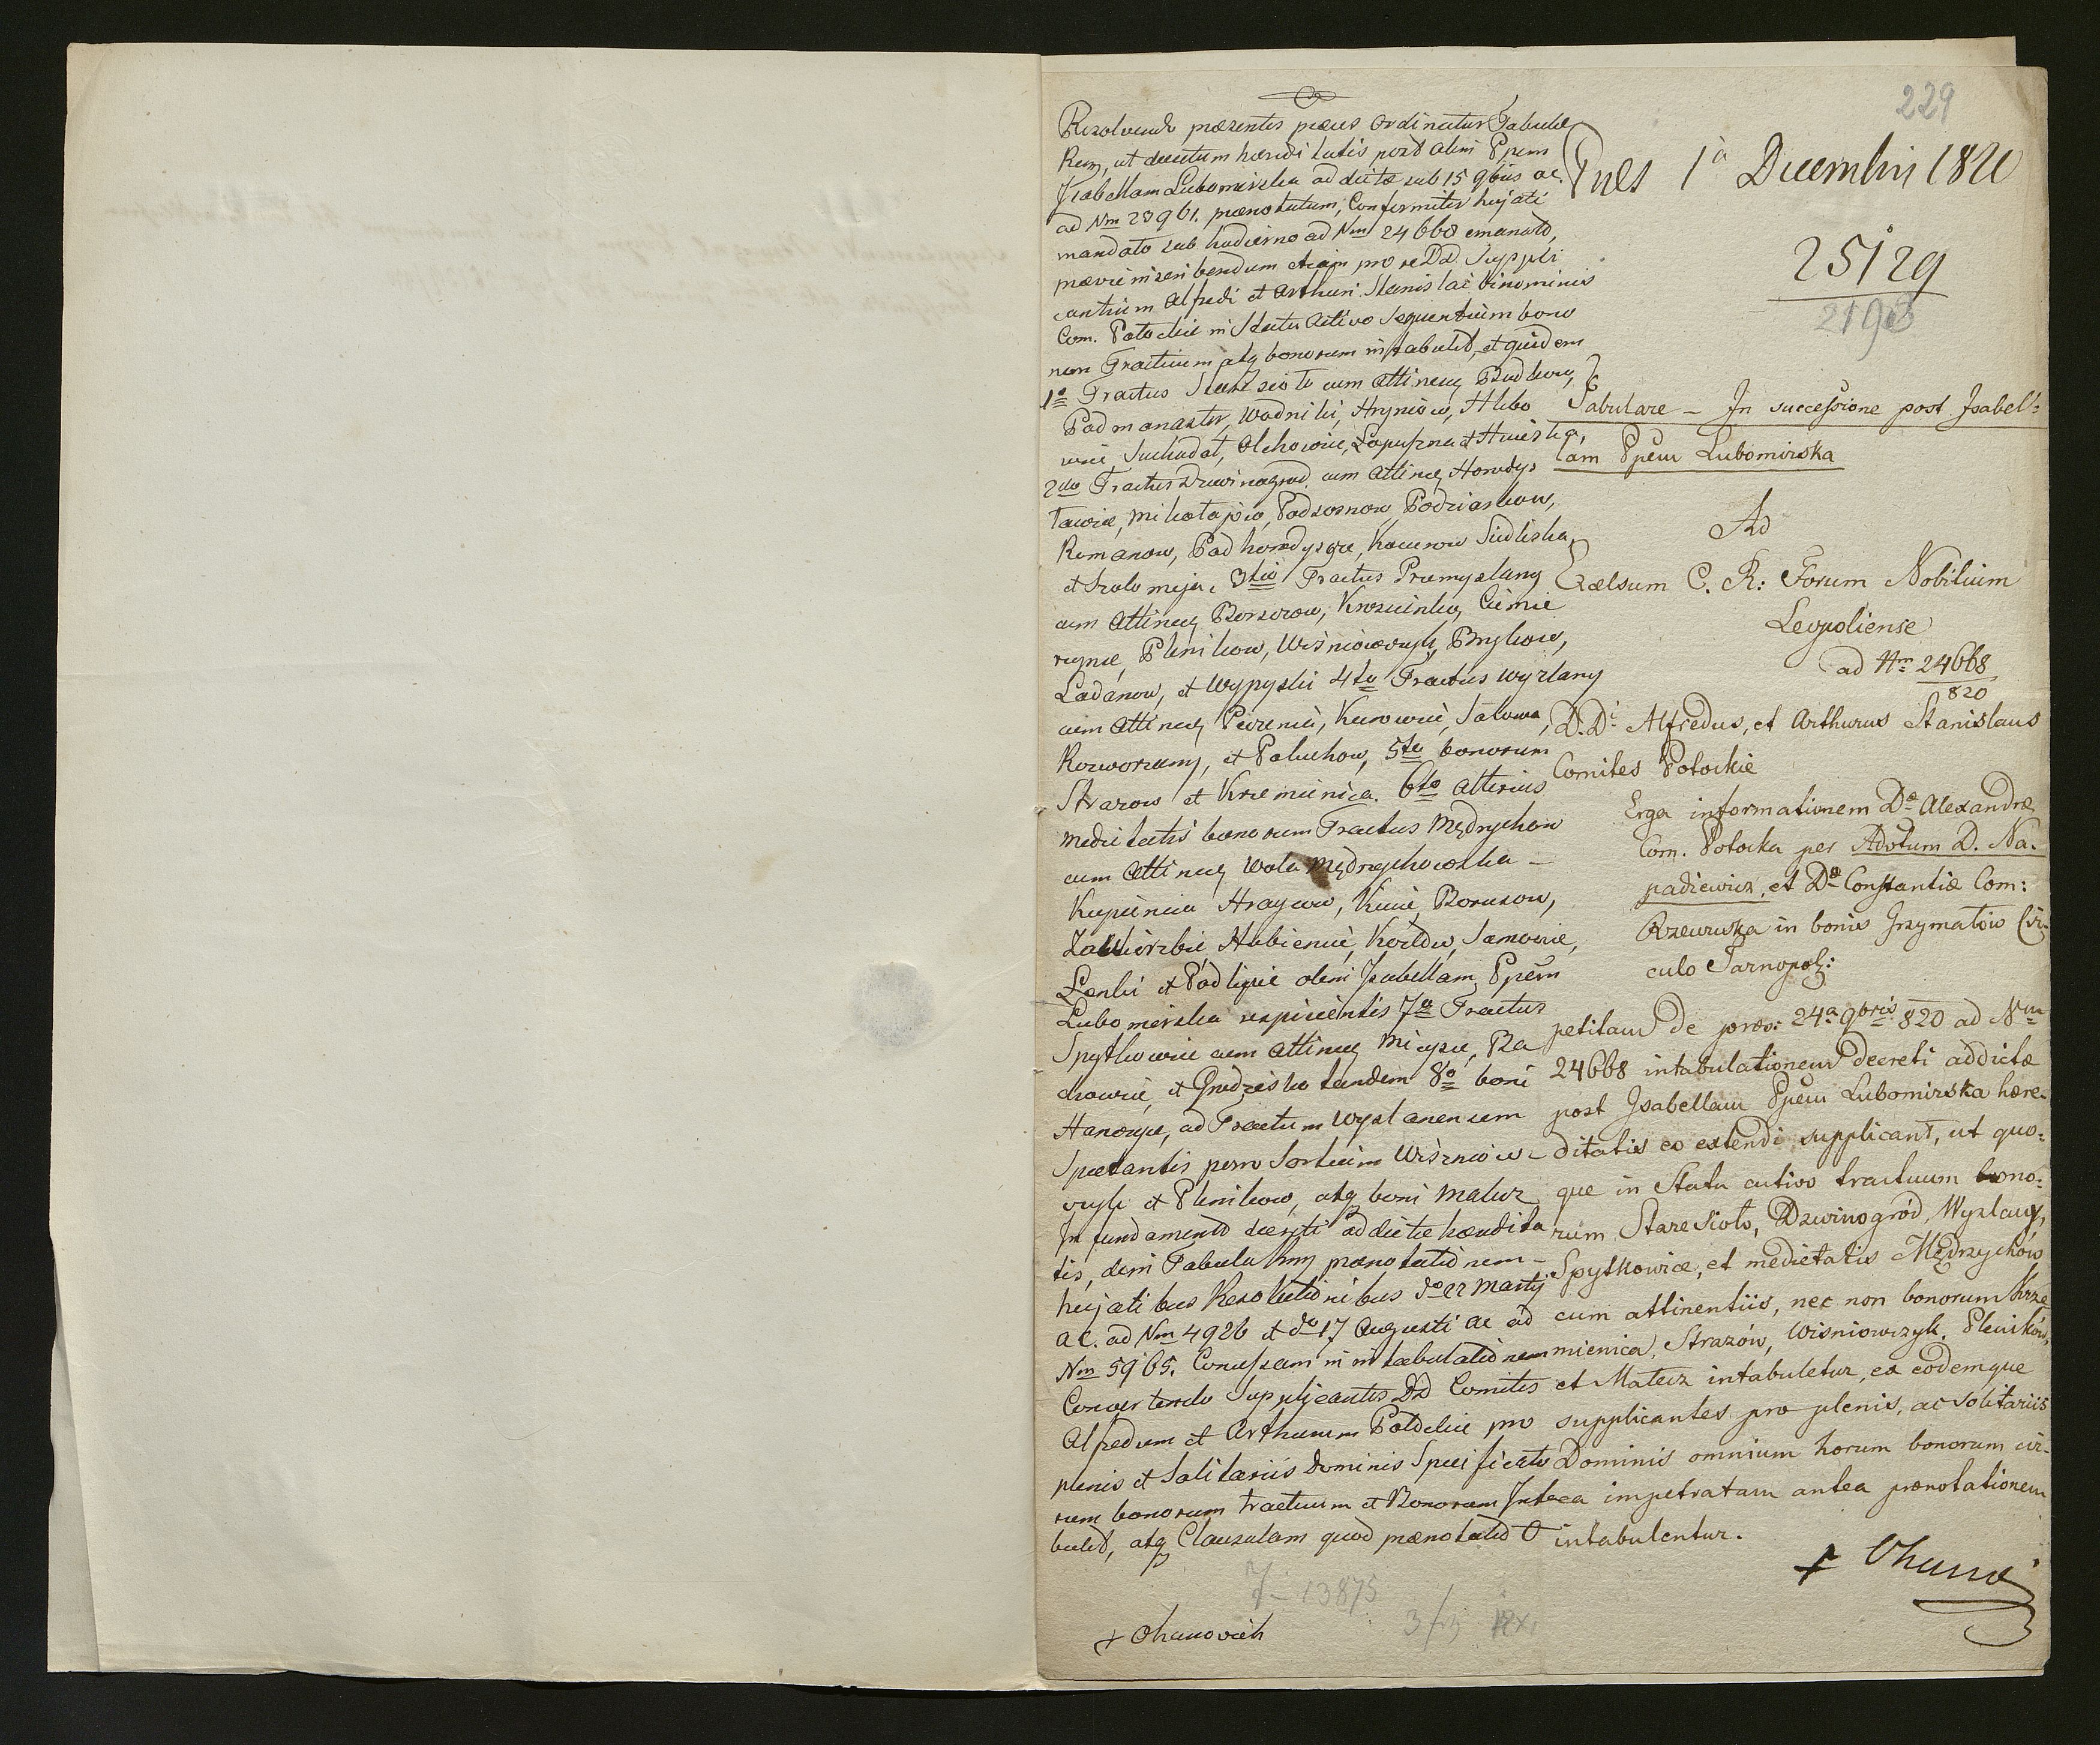 229
Pnes 1a Decembris 1820
25129
2193
Tabulare – In successione post Isabel=
lam Ppem Lubomirska
Ad
Excelsum C. R: Forum Nobilium
Leopoliense
ad Nrm 24668
820
D.Di Alfredus, et Arthurus Stanislaus
Comites Potockie
Erga informationem Dæ Alexandræ
Com. Potocka per Advtum D. Na-
padiewicz, et Dæ Constantiæ Com:
Rzewuska in bonis Grzymałów Cir-
culo Tarnopol:
petitam de præs: 24a 9bris 820 ad Nrm
24668 intabulationem decreti addictæ
post Isabellam Ppem Lubomirska hære-
ditatis eo extendi supplicant, ut quo=
que in Statu activo tractuum bono=
rum Stare Sioło, Dzwinogród, Wyzlany,
Spytkowice, et medietatis Mędrzychów
cum attinentiis, nec non bonorum Krze
mienica, Strazów, Wisniowczyk, Pleników,
et Mateuz intabuletur, ex eodemque
supplicantes pro plenis, ac solitariis
Dominis omnium horum bonorum cir-
ca impetratam antea prænotationem
intabulentur.
Resolvendo præsentes preces ordinatur Tabulæ
Reg, ut decretum hæreditatis post olim Ppem
Isabellam Lubomirska addictæ sub 15 9bris ac.
ad Nrm 23961. prænotatum, Conformiter hujati
mandato sub hodierno ad Nrm 24668 emanato,
prævie inscribendum etiam pro re DD. Suppli
cantium Alfredi et Arthuri Stanislai binominis
Com. Potockie in Statu Activo Sequentium bono
rum Tractuum atq bonorum intabulet, et quidem
1o Tractus Stare Sioło cum Attinen Budkow,
Podmanaster, Wodniki, Hryniow, Hlebo
wice Suchodoł, Olchowice, Łopuszna et Huciska,
2do Tractus Dzwinogrod cum Attinen Horodys
ławice, Mikołajow, Podsosnow, Podziarkow,
Romanow, Podhorodysze, Kocurow Siedliska,
et Szołomyja, 3tio Tractus Przemyslany
cum Attinen Borszow, Krosienko, Ciemie
rzynce, Plenikow, Wisniowczyk, Brykow,
Ładanow, et Wypyski 4to Tractus Wyzlany
cum Attinen Poczenia, Kurowice, Salowa,
Rozworzany, et Poluchow, 5to bonorum
Strazow et Krzemienica. 6to Alterius
medietatis bonorum Tractus Mędrzychow
cum Attinen Wola Mędrzychowska –
Kupienin Hrayow, Kuie, Boruszow,
Zawierzbie Hubienice, Kozłow, Samocice,
Łęnki et Podlipie olim Isabellam Ppem
Lubomirska respicientis 7o Tractus
Spytkowice cum Attinen Miejsce, Ba
chowice, et Grodzisko tandem 8o boni
Hanczyce, ad Tractum Wyzlanensem
Spectantis porro Sortium Wiśniow-
czyk et Plenikow, atq boni Mateuz
In fundamento decreti addictæ hæredita
tis, dein Tabula Reg prænotationem –
hujatibus Resolutionibus do 22 Martij
ac. ad Nrm 4926 et do 17 Augusti ac ad
Nrm 5965. Concessam in intabulationem
Convertendo Supplicantes DD Comites
Alfredum et Arthurum Potockie pro
plenis et Solitariis Dominis Specificato
rum bonorum tractuum et Bonorum Inta
bulet, atq Clausulam quod prænotatio
7 – 13875
+ Ohanowich